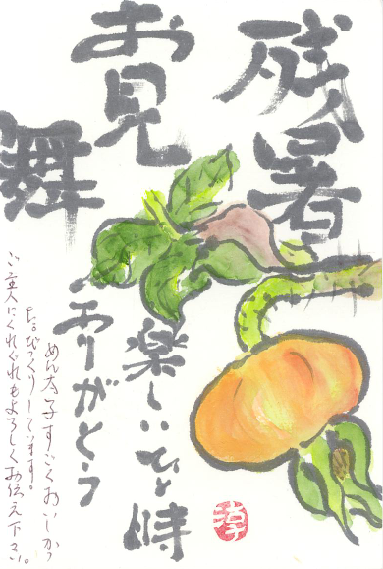 残暑
お見
舞
楽しいひと時
ありがとう
めん太子すごくおいしかっ
た。びっくりしています。
ご主人にくれぐれもよろしくお伝え下さい。